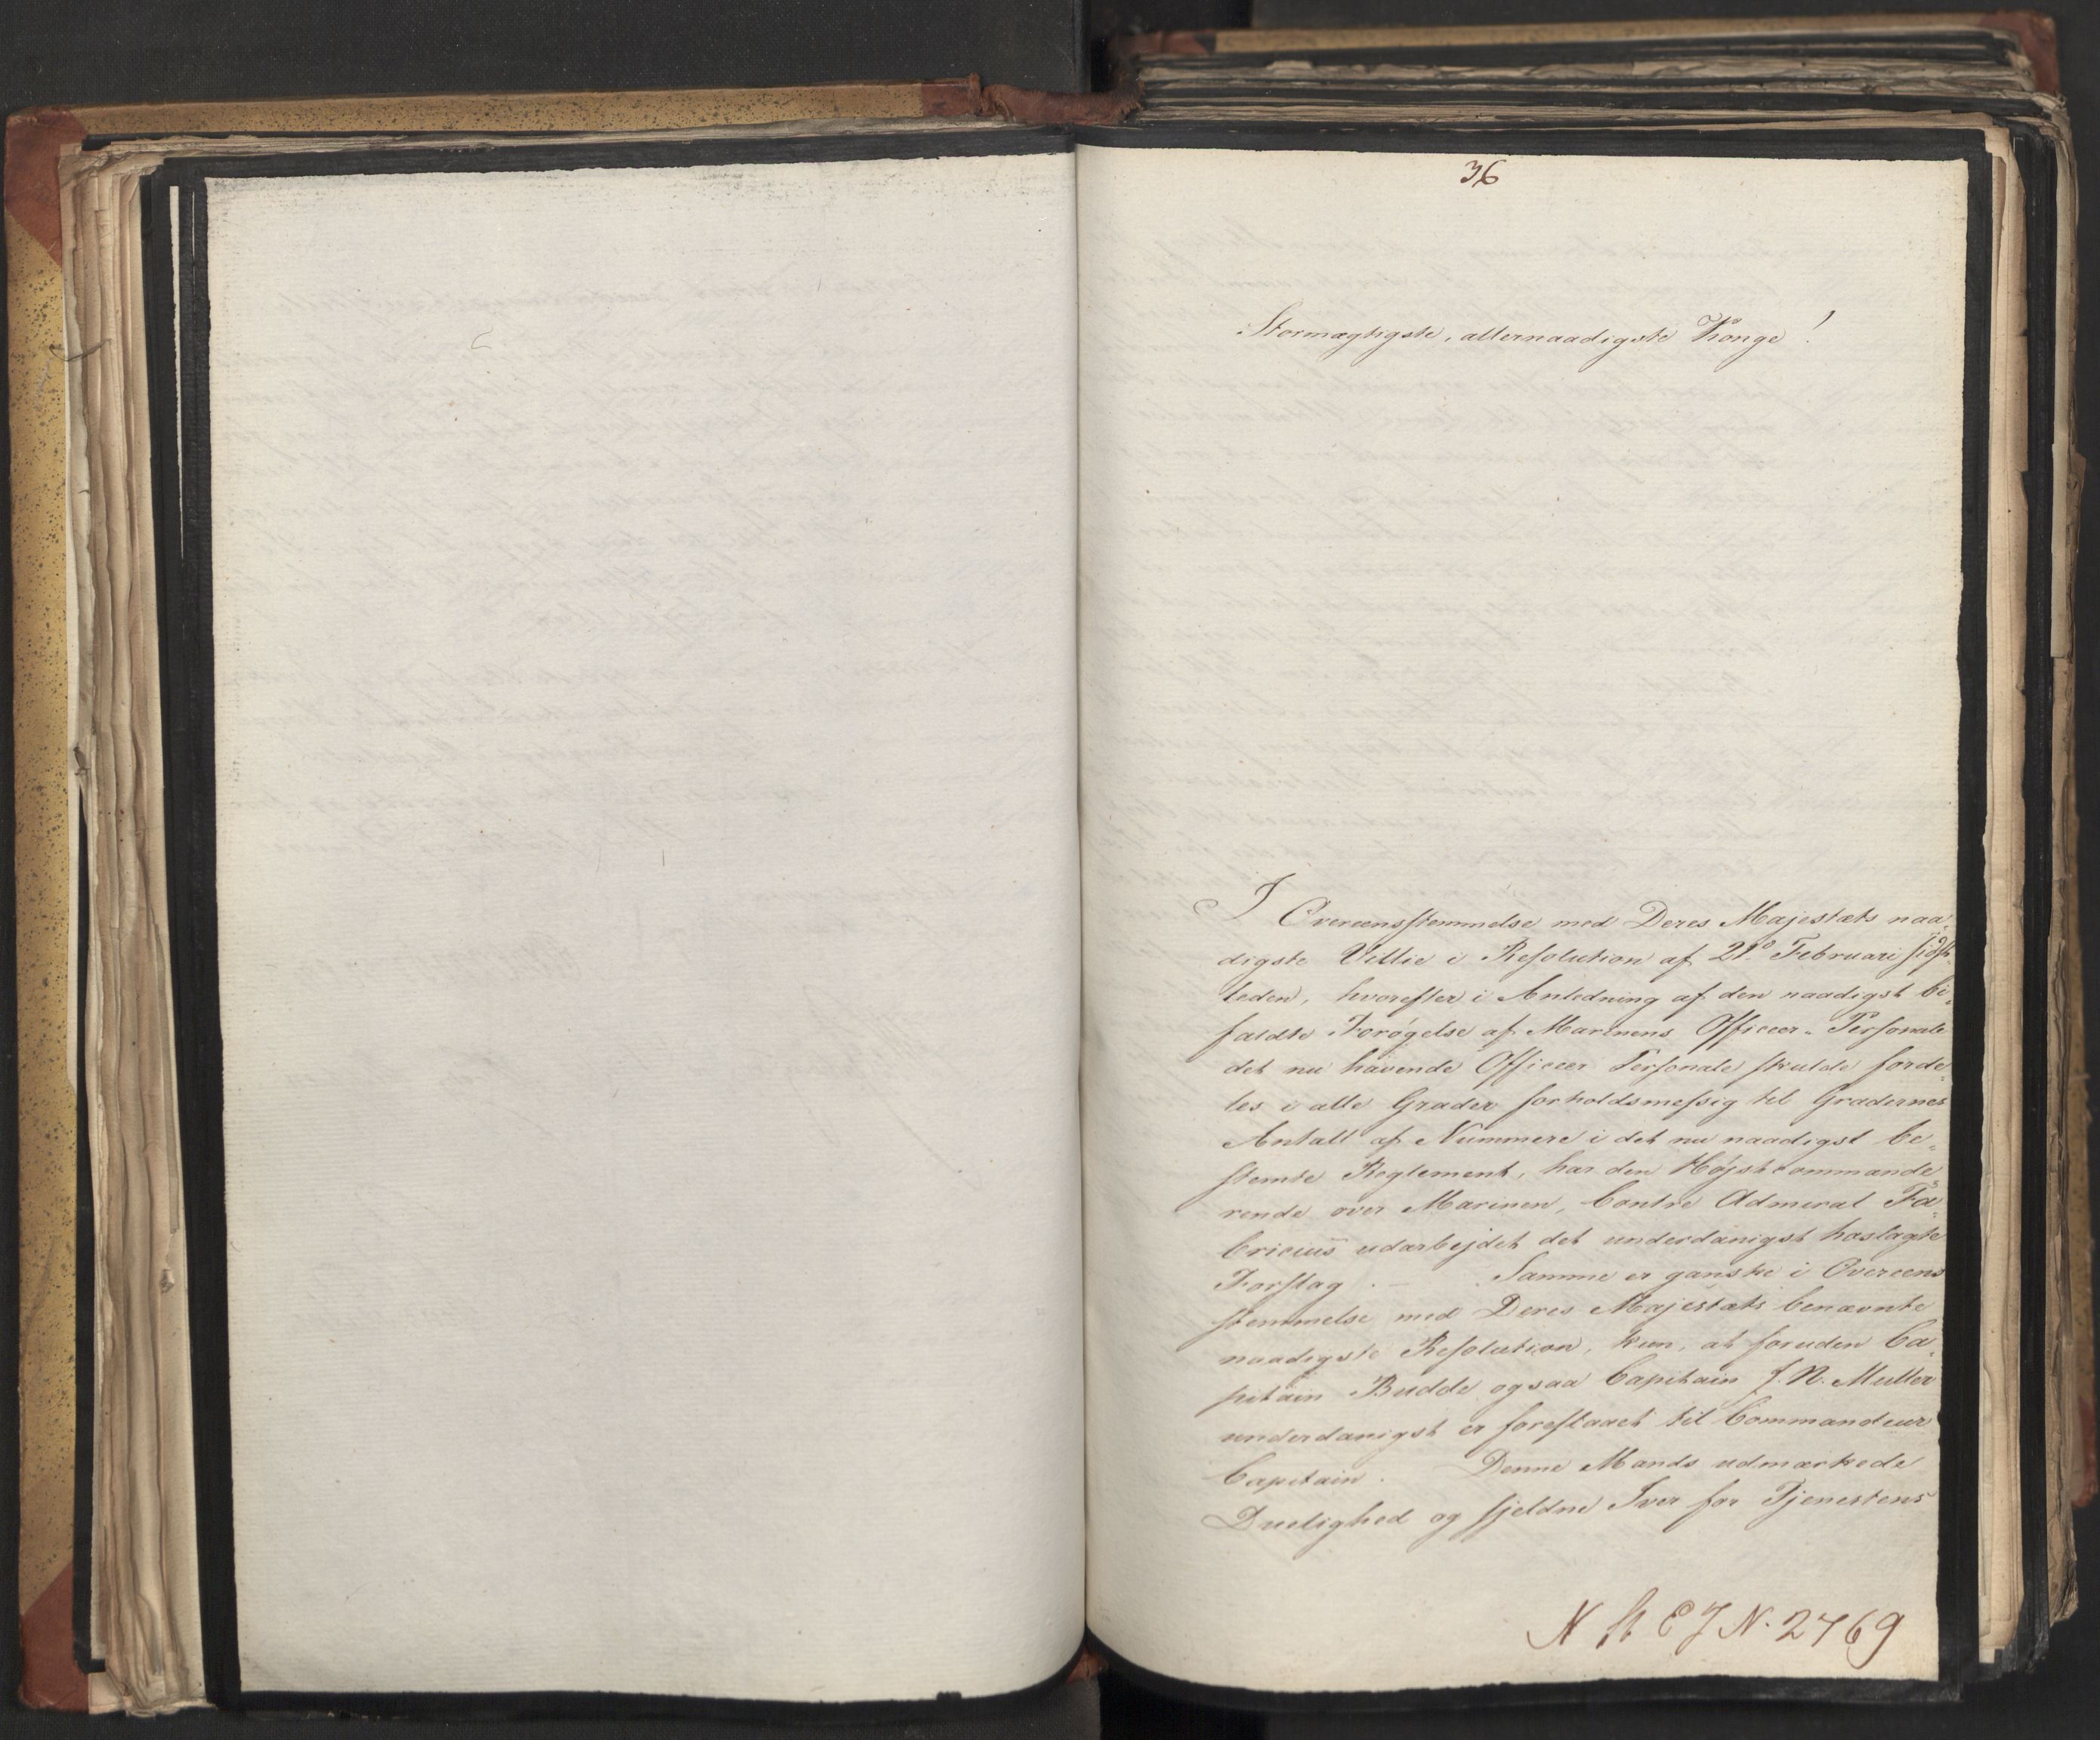 36
Stormægtigste, allernaadigste Konge!
I Overeensstemmelse med Deres Majestæts naa„
digste Villie i Resolution af 21de Februari sidst„
leden, hvorefter i Anledning af den naadigst bi„
faldte Forøgelse af Marinens Officeer„ Personale
det nu havende Officeer Personale skulde forde„
les i alle Grader forholdsmessig til Gradernes
Antall af Nummere i det nu naadigst be„
stemte Reglement, har den Højstcommande„
rende over Marinen, Contre Admiral Fa„
bricius udarbejdet det underdanigst hoslagte
Forslag. — Samme er ganske i Overeens
stemmelse med Deres Majestæts benævnte
naadigste Resolution, kun, at foruden Ca„
pitain Budde ogsaa Capitain J. N. Muller
underdanigst er foreslaaet til Commandeur
Capitain. Denne Mands udmærkede
Duelighed og sjeldne Iver for Tjenestens
N St E J N. 2769